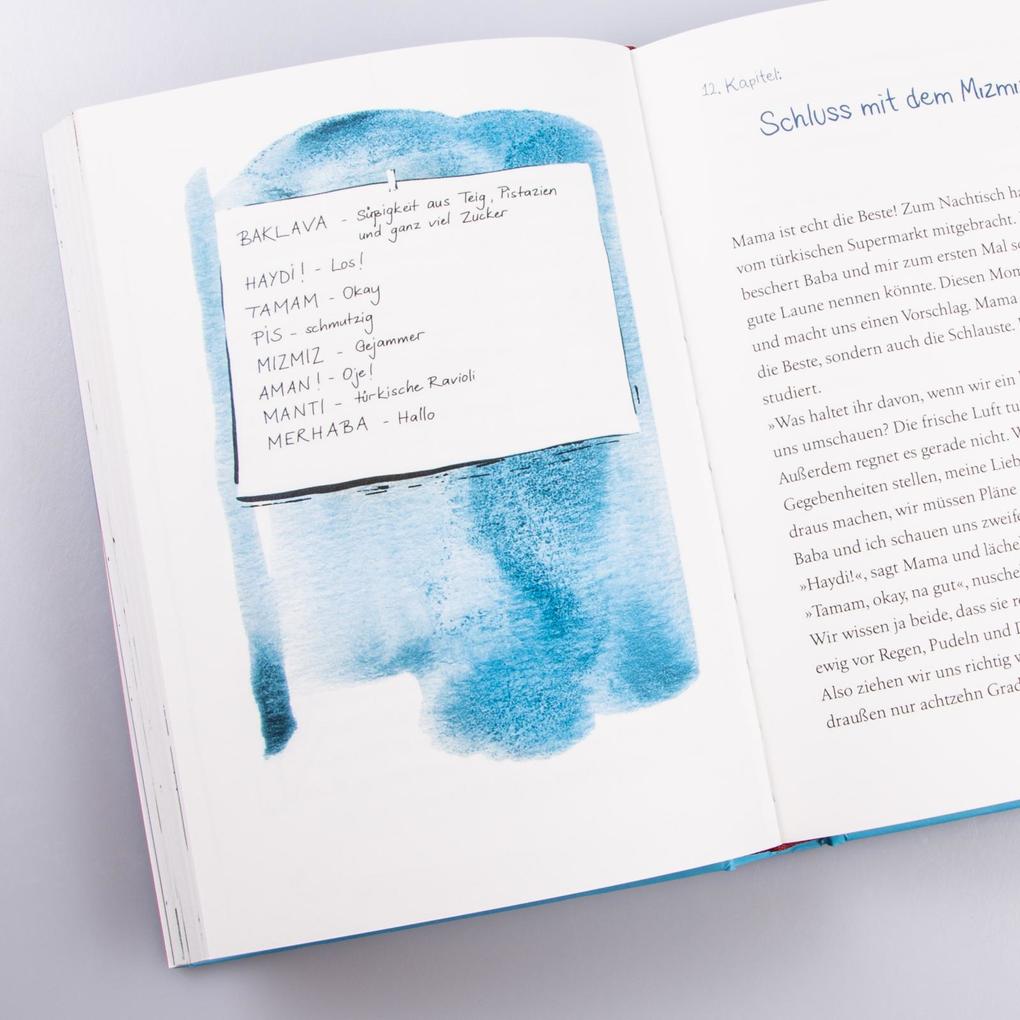 BAKLAVA - Süßigkeit aus Teig, Pistazien
und ganz viel Zucker
HAYDİ! - Los!
TAMAM - Okay
PİS - schmutzig
MIZMIZ - Gejammer
AMAN! - Oje!
MANTI - türkische Ravioli
MERHABA - Hallo
12. Kapitel:
Schluss mit dem
Mama ist echt die Beste! Zum Nachtisch
vom türkischen Supermarkt mitgebracht.
beschert Baba und mir zum ersten Mal
gute Laune nennen könnte. Diesen
und macht uns einen Vorschlag. Mama
die Beste, sondern auch die Schlauste.
studiert.
»Was haltet ihr davon, wenn wir ein
uns umschauen? Die frische Luft
Außerdem regnet es gerade nicht.
Gegebenheiten stellen, meine
draus machen, wir müssen Pläne
Baba und ich schauen uns
»Haydi!«, sagt Mama und
»Tamam, okay, na gut«,
Wir wissen ja beide, dass sie
ewig vor Regen, Pudeln und
Also ziehen wir uns richtig
draußen nur achtzehn